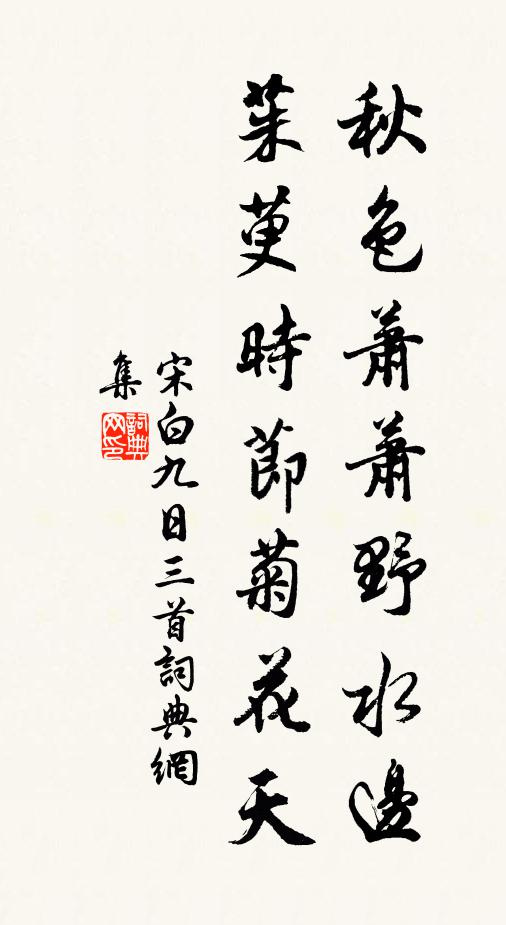 秋色蕭蕭野水邊
茱萸時節菊花天
宋白九日三首詞典網
集
詞典网印